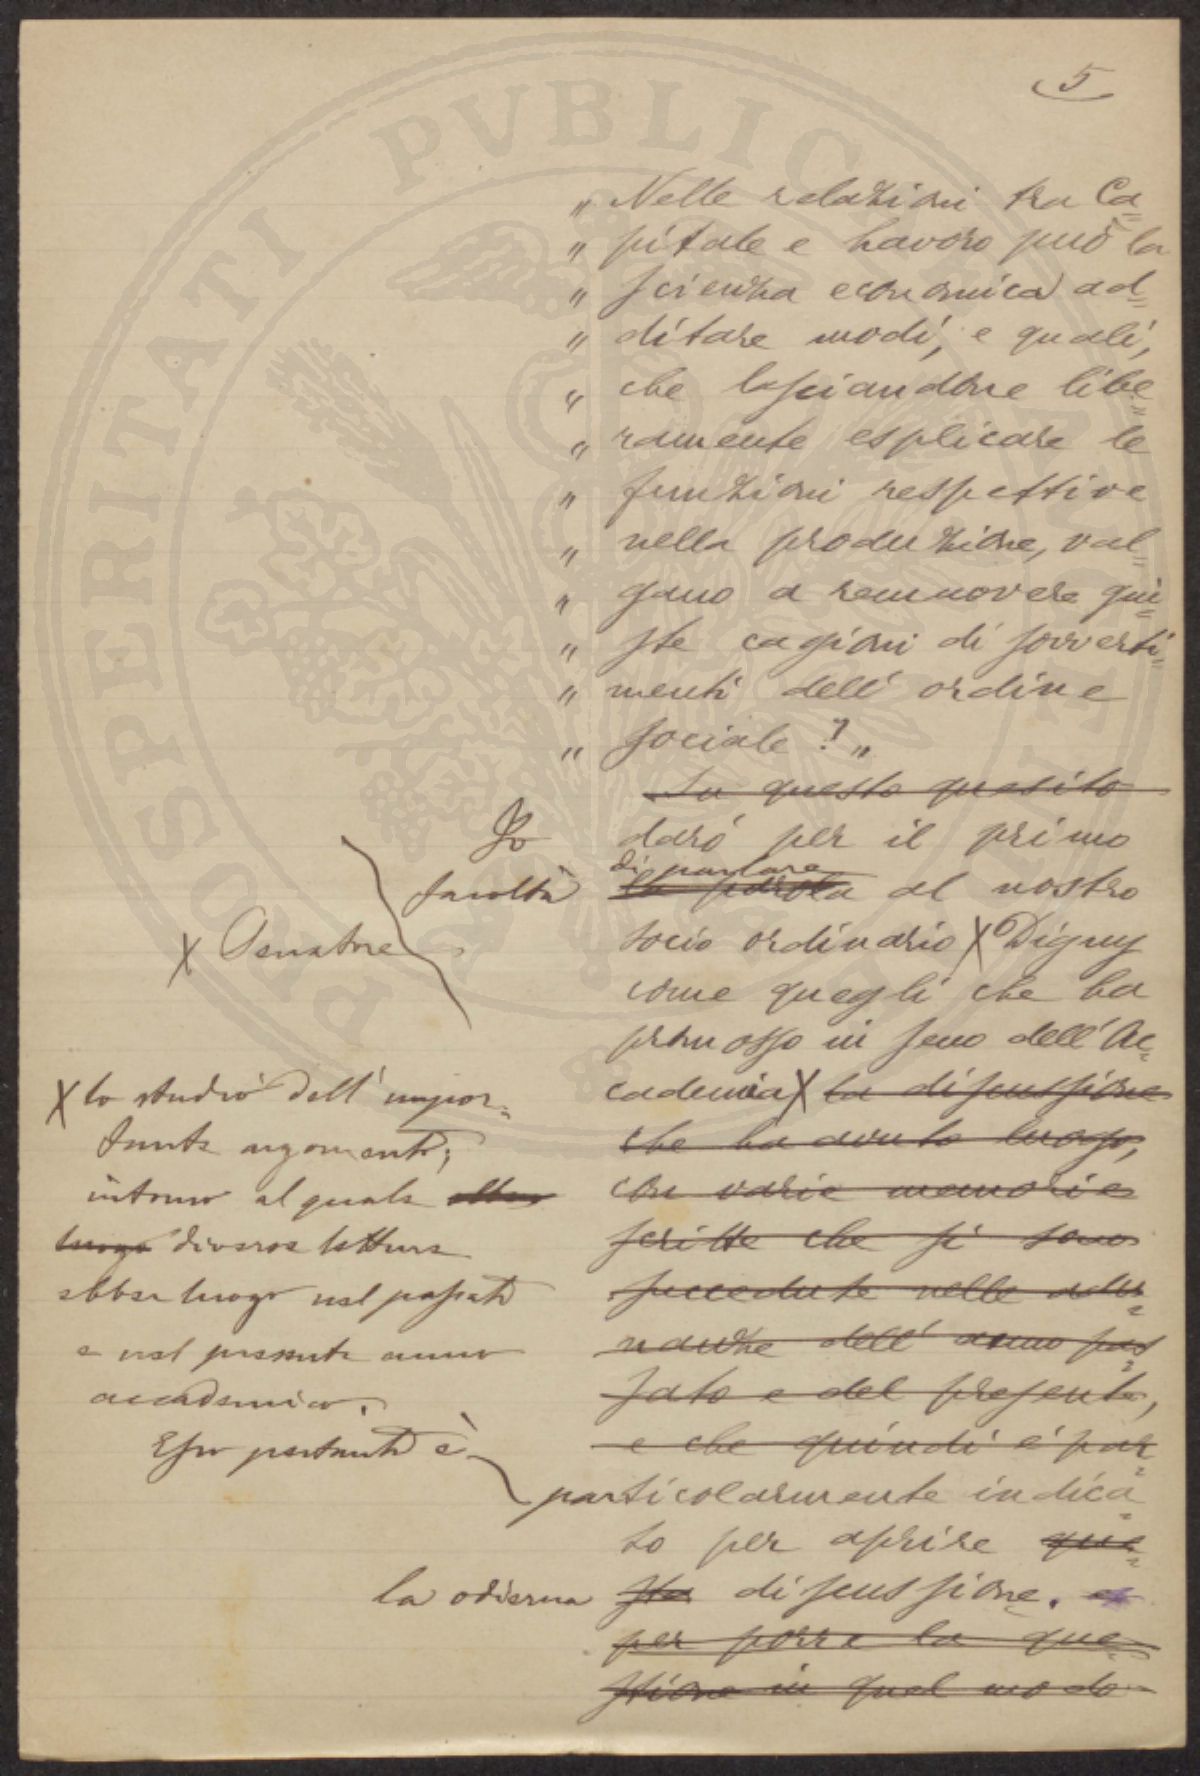 5
„ Nelle relazioni tra Ca=
„ pitale e lavoro può la
„ scienza economica ad=
„ ditare modi, e quali,
„ che lasciandone libe=
„ ramente esplicare le
„ funzioni respettive
„ nella produzione, val=
„ gano a remuovere qui=
„ ste cagioni di sovverti=
„ menti dell' ordine
„ sociale? „
Su questo quesito
Io darò per il primo
di parlare
facoltà la parola al nostro
X Senatore
socio ordinario X Digny
come quegli che ha
promosso in seno dell' Ac=
cademia X la discussione
che ha avuto luogo,
con varie memorie
scritte che si sono
succedute nelle adu=
nanze dell' anno pas=
sato e del presente,
e che quindi é par=
X lo studio dell' impor=
tante argomento;
intorno al quale ebbero
luogo diverse letture
ebber luogo nel passato
e nel presente anno
accademico.
Esso pertanto è
particolarmente indica=
to per aprire que=
la odierna sta discussione. e
per porre la que=
stione in quel modo
PROSPERITATI PVBLICAE AVGENDAE